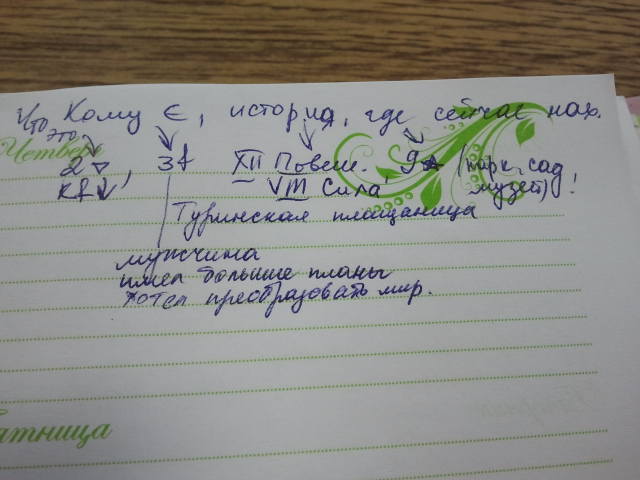 Что Кому Є, история, где сейчас нах.
это
Четверг
2▽, 3 XII Повеш. 9 (парк, сад
VIII Сила, музей)!
Туринская плащаница
мужчина
имел большие планы
хотел преобразовать мир.
Пятница